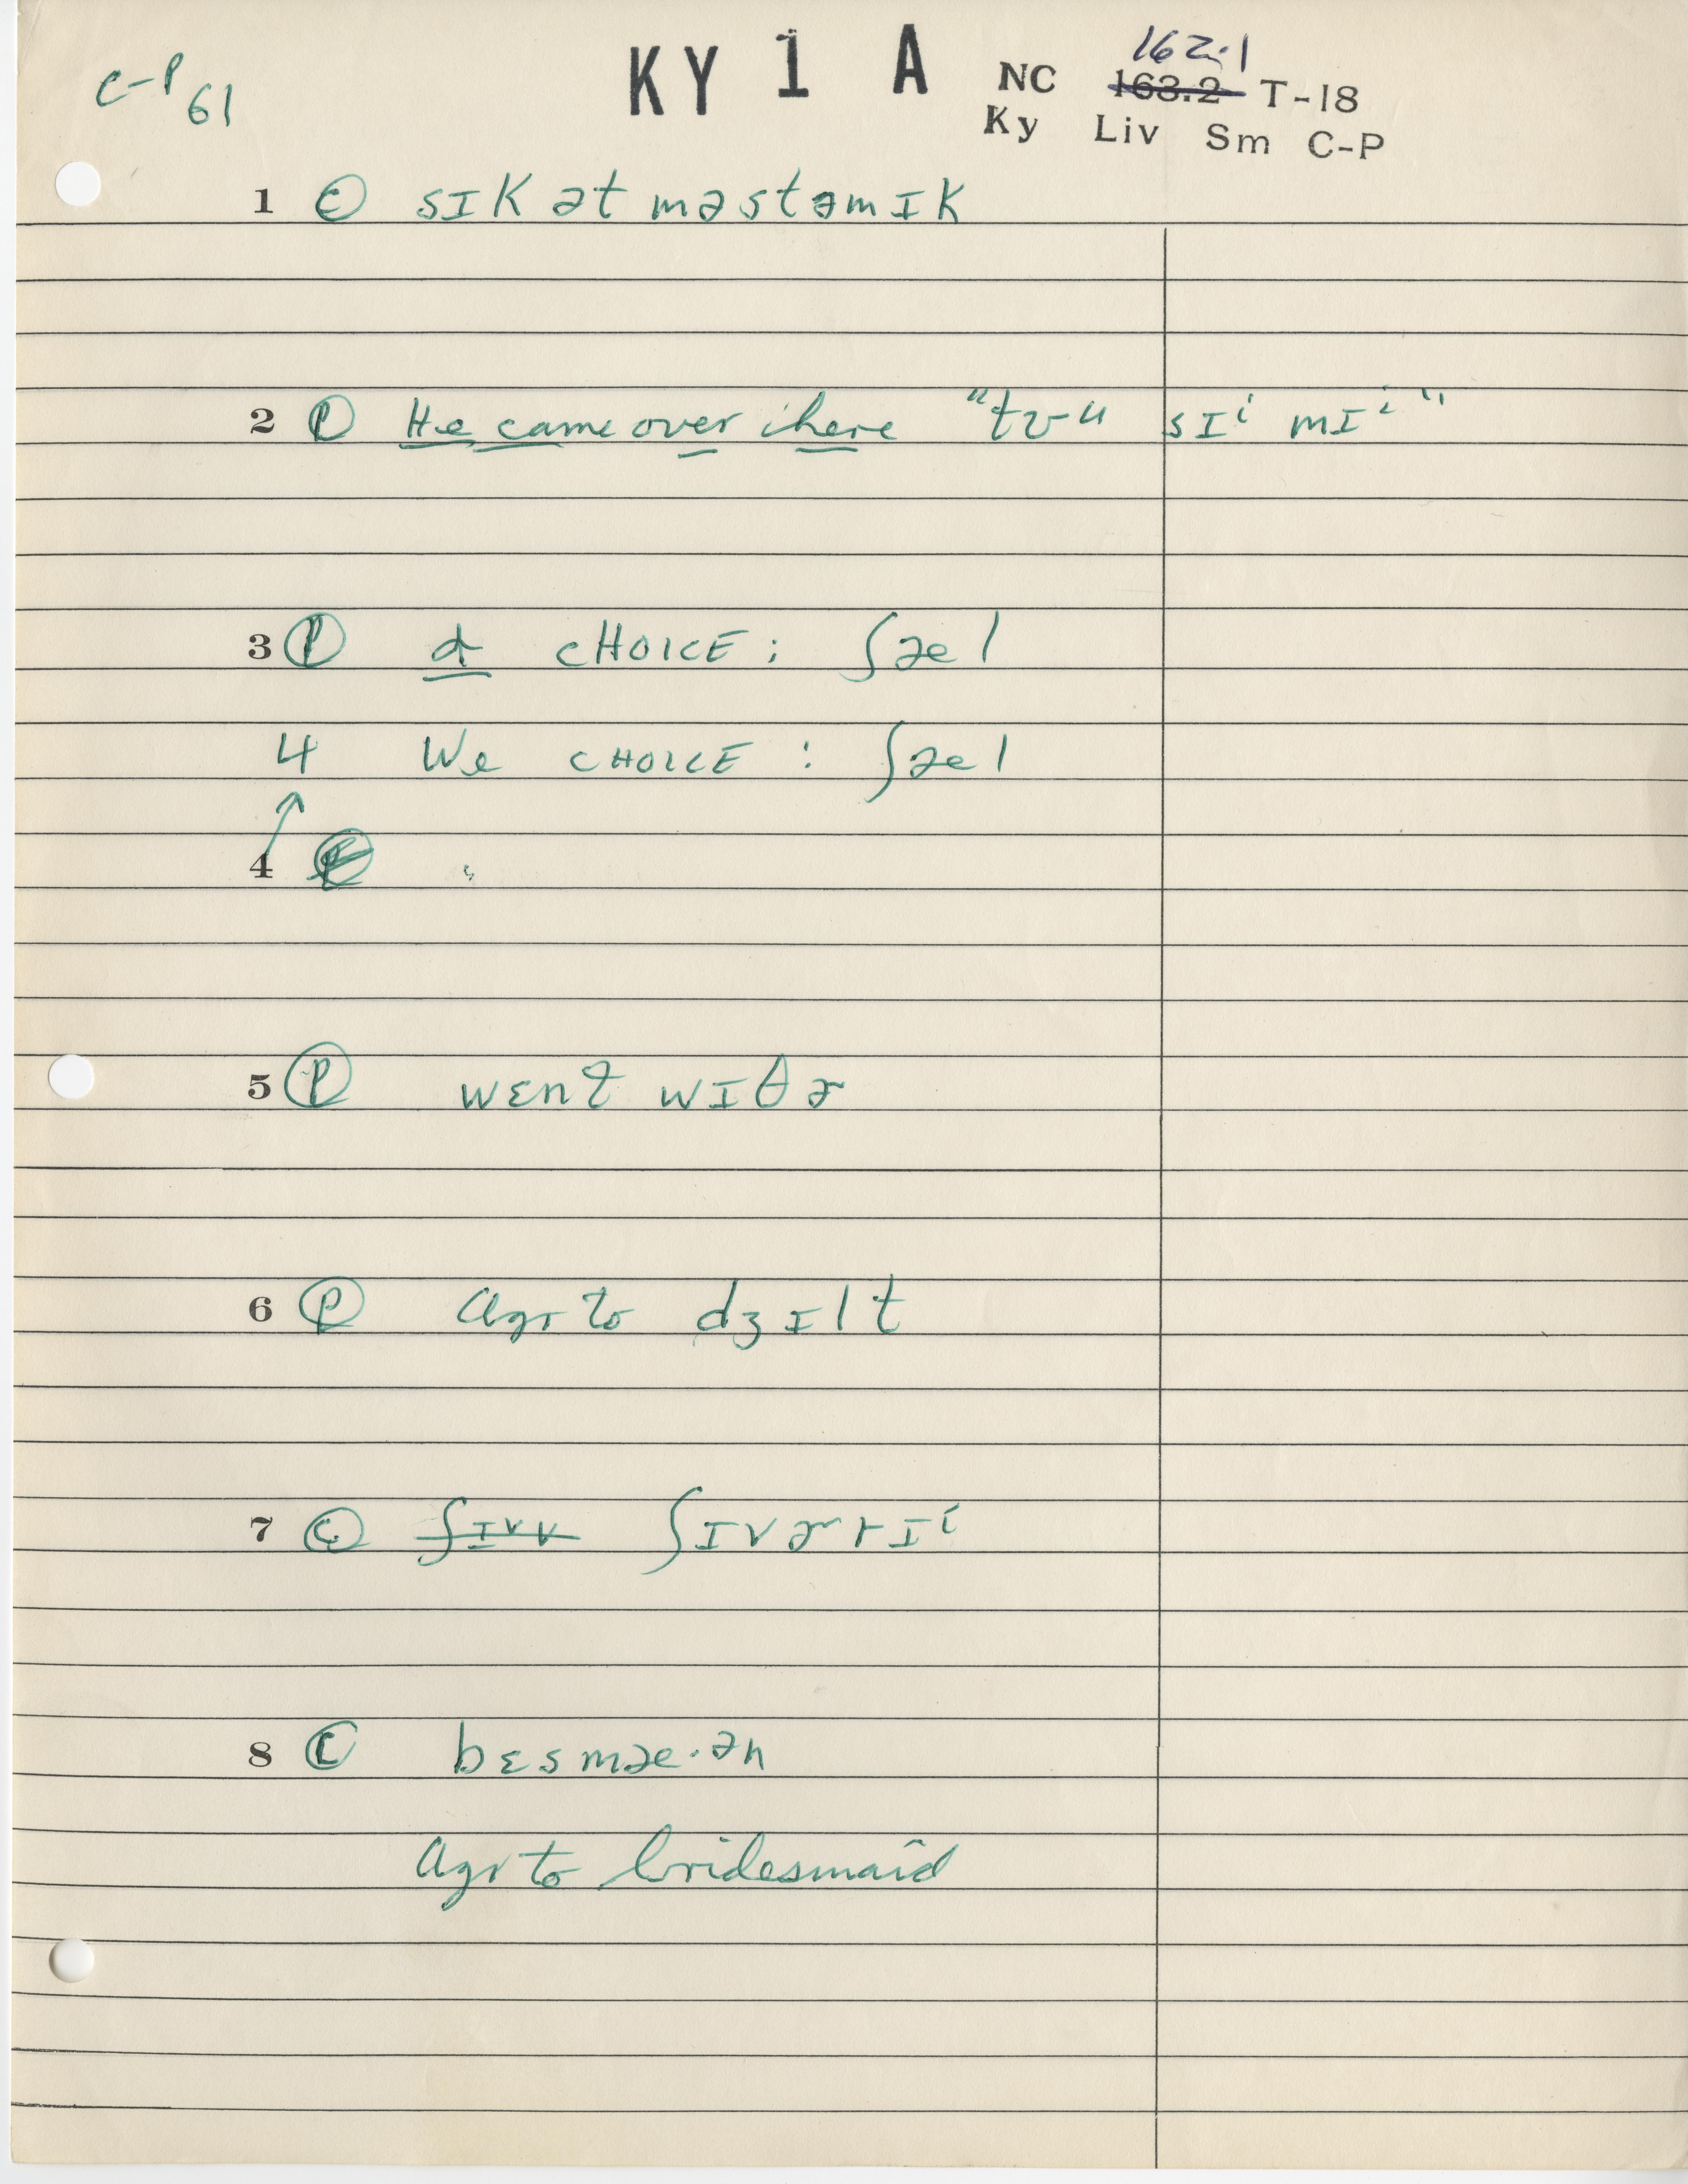 C-P 61
KY 1 A
162.1
NC 163.2 T-18
Ky Liv Sm C-P
1 C sɪk ət məstəmɪk
2 P He came over here "tʊu sɪⁱ mɪⁱ"
3 P I CHOICE: ʃæl
4 We CHOICE: ʃæl
4
5 P wɛnt wɪθ ɚ
6 P agr to dʒɪlt
7 C ʃɪvv ʃɪvɚrɪⁱ
8 C bɛsmæ·ən
agr to bridesmaid